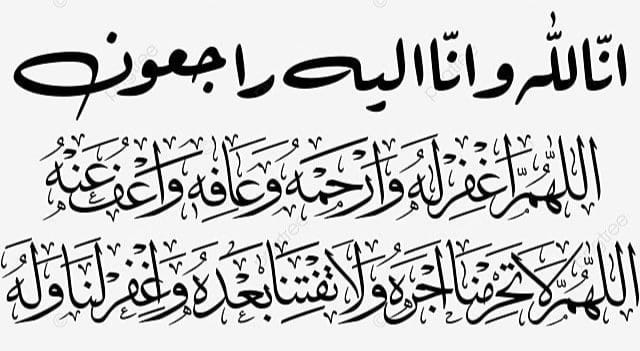 انّا للّٰه و انّا اليه راجعون
اللَّهُمَّ اغْفِرْ لَهُ وَارْحَمْهُ وَعَافِهِ وَاعْفُ عَنْهُ
اللَّهُمَّ لَا تَحْرِمْنَا اَجْرَهُ وَلَا تَفْتِنَّا بَعْدَهُ وَاغْفِرْ لَنَا وَلَهُ